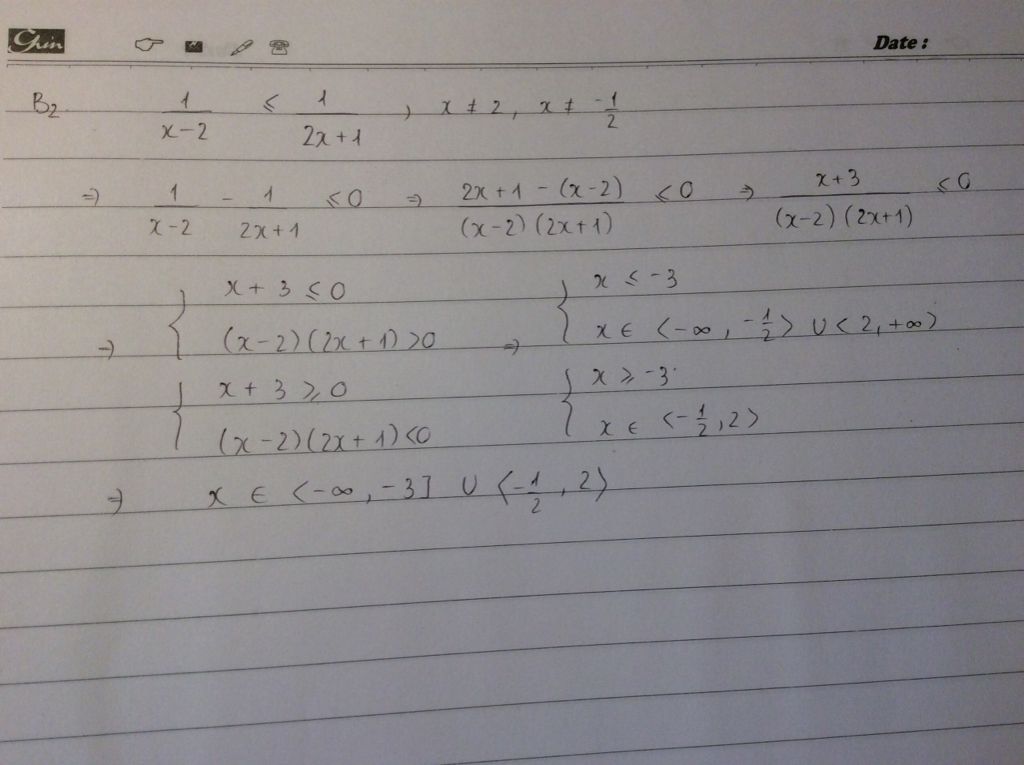 Chin Date :
B2. 1/(x-2) ≤ 1/(2x+1) , x ≠ 2, x ≠ -1/2
⇒ 1/(x-2) - 1/(2x+1) ≤ 0 ⇒ (2x+1-(x-2))/((x-2)(2x+1)) ≤ 0 ⇒ (x+3)/((x-2)(2x+1)) ≤ 0
{ x + 3 ≤ 0 { x ≤ -3
⇒ (x-2)(2x+1)>0 ⇒ x ∈ <-∞, -1/2> ∪ <2, +∞>
{ x + 3 ≥ 0 { x ≥ -3
(x-2)(2x+1)<0 x ∈ <-1/2, 2>
⇒ x ∈ <-∞, -3] ∪ <-1/2, 2>